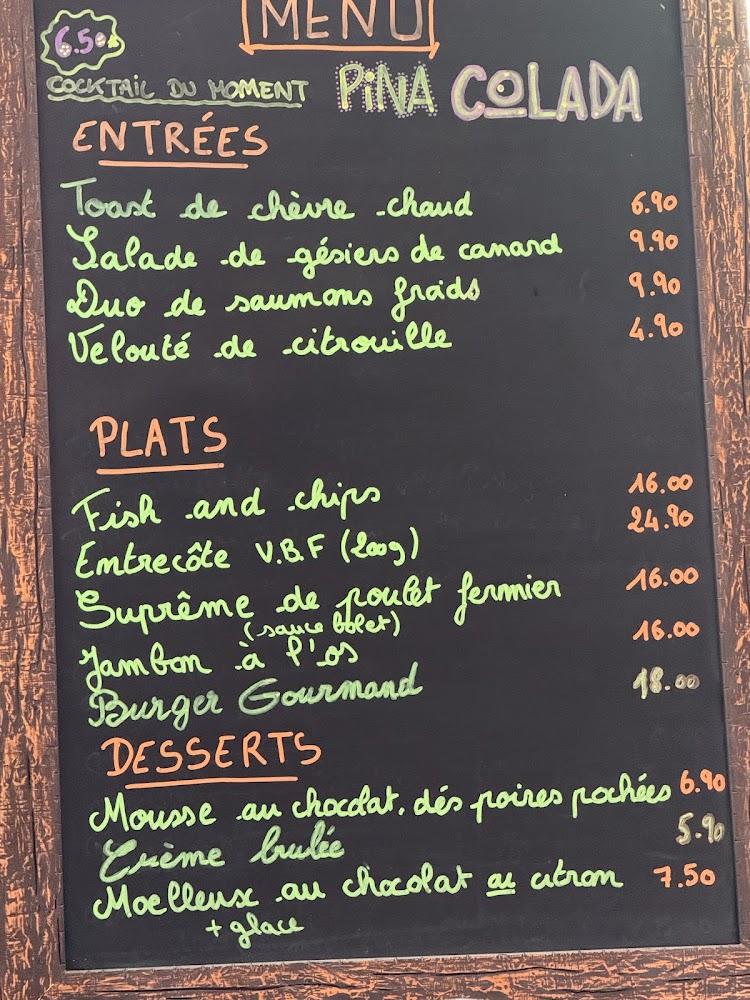 MENU
6.50€
COCKTAIL DU MOMENT PiNA COLADA
ENTRÉES
Toast de chèvre chaud 6.90
Salade de gésiers de canard 9.90
Duo de saumons froids 9.90
Velouté de citrouille 4.90
PLATS
Fish and chips 16.00
Entrecôte V.B.F (200g) 24.90
Suprême de poulet fermier 16.00
(sauce bolet)
Jambon à l'os 16.00
Burger Gourmand 18.00
DESSERTS
Mousse au chocolat, dés poires pochées 6.90
Crème brulée 5.90
Moelleux au chocolat au citron 7.50
+ glace